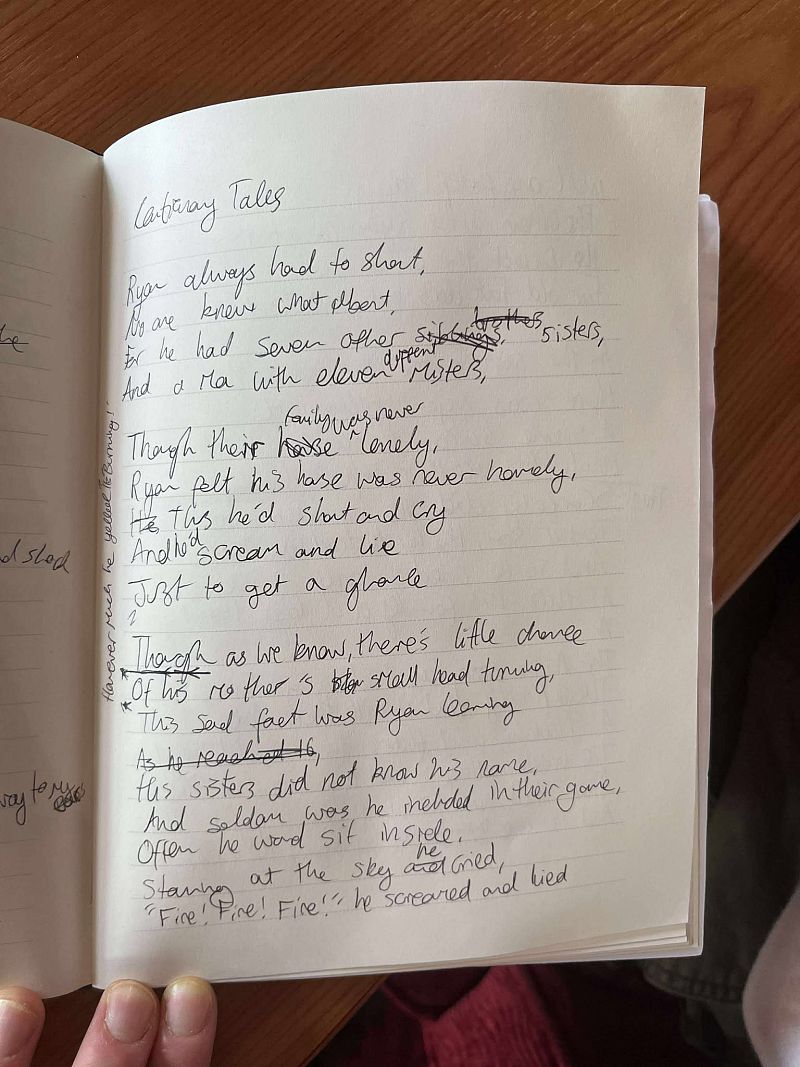 he
d shed
way to my
Cautionary Tales
Ryan always had to shout,
No one knew what about,
For he had seven other siblings, brothers, sisters,
And a Ma with eleven different Misters,
Though their house family was never lonely,
Ryan felt his house was never homely,
He Thus he'd shout and cry
And he'd scream and lie
Just to get a glance
Though as we know, there's little chance
Of his mother's small head turning,
This sad fact was Ryan learning
As he reached 16,
His sisters did not know his name,
And seldom was he included in their game,
Often he would sit inside,
Staring at the sky and he cried,
"Fire! Fire! Fire!" he screamed and lied
However much he yelled 'Is burning!'